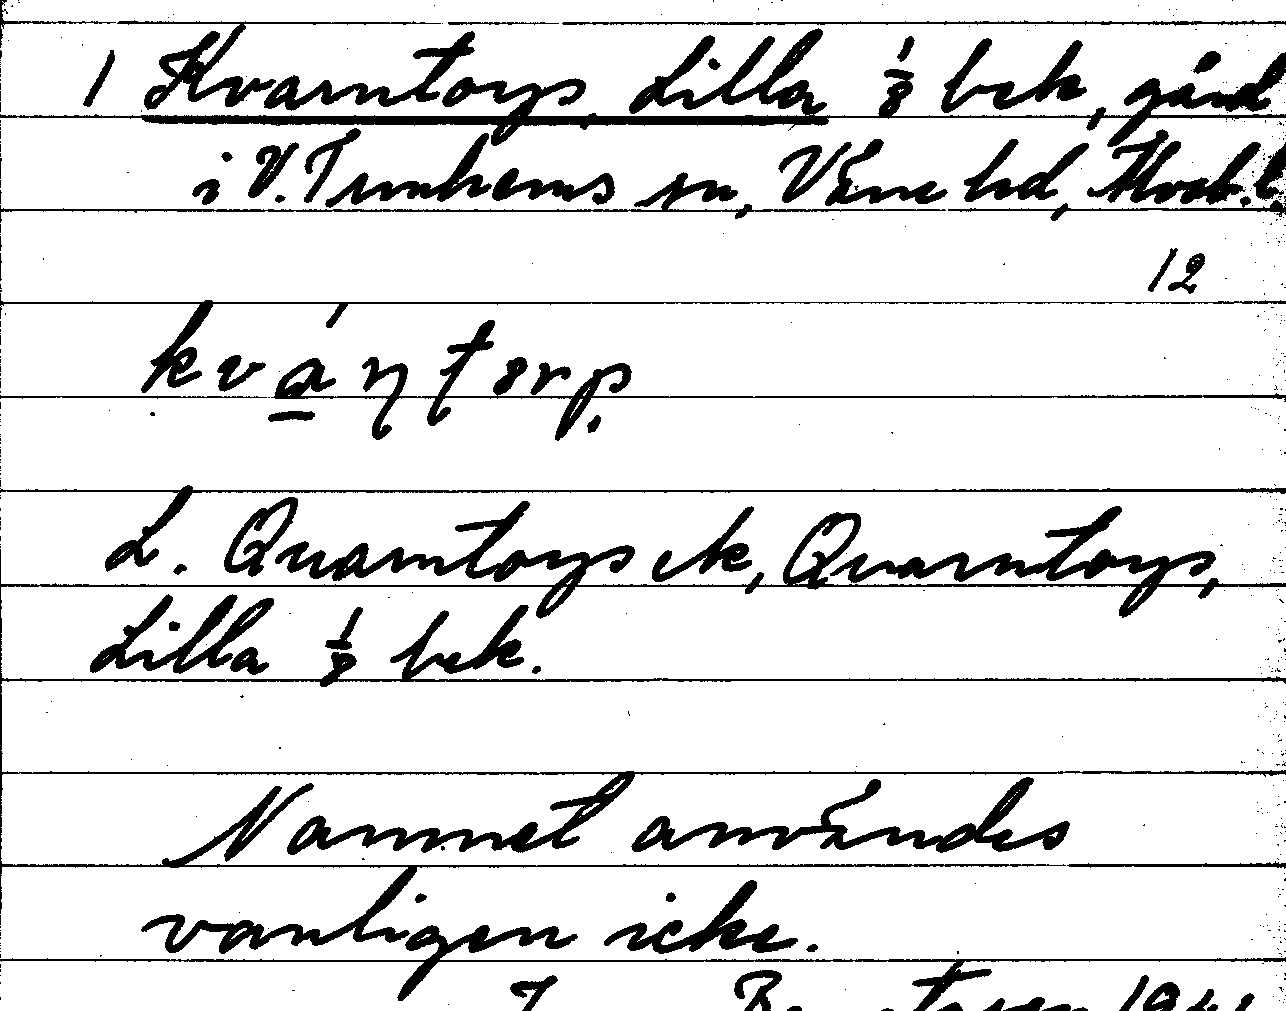 1 Kvarntorp, Lilla 1/8 bek, gård
i V. Tunhems sn, Väne hd, Älvsb. l.
12
kvá̱ṇṭorp.
L. Quarntorp ek, Quarntorp,
Lilla 1/8 bek.
Namnet användes
vanligen icke.